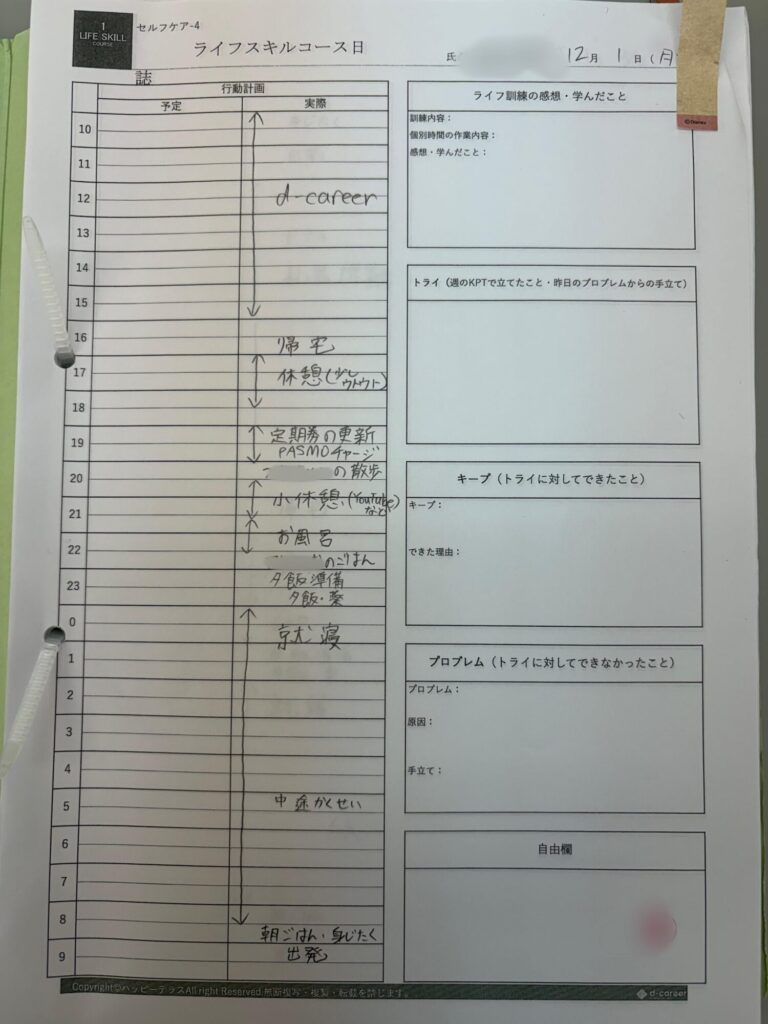 1
LIFE SKILL
COURSE
セルフケア-4
ライフスキルコース日
誌
氏
12月 1日(月
行動計画
予定
実際
10
11
12
d-career
13
14
15
16
帰宅
17
休憩(少し
ウトウト)
18
19
定期券の更新
PASMOチャージ
20
の散歩
小休憩(YouTube
など)
21
お風呂
22
のごはん
23
夕飯準備
夕飯・薬
0
就寝
1
2
3
4
5
中途かくせい
6
7
8
朝ごはん・身じたく
9
出発
ライフ訓練の感想・学んだこと
訓練内容:
個別時間の作業内容:
感想・学んだこと:
トライ(週のKPTで立てたこと・昨日のプロブレムからの手立て)
キープ(トライに対してできたこと)
キープ:
できた理由:
プロブレム(トライに対してできなかったこと)
プロブレム:
原因:
手立て:
自由欄
Copyright©ハッピーテラスAll right Reserved.無断複写・複製・転載を禁じます。
d-career
©Disney